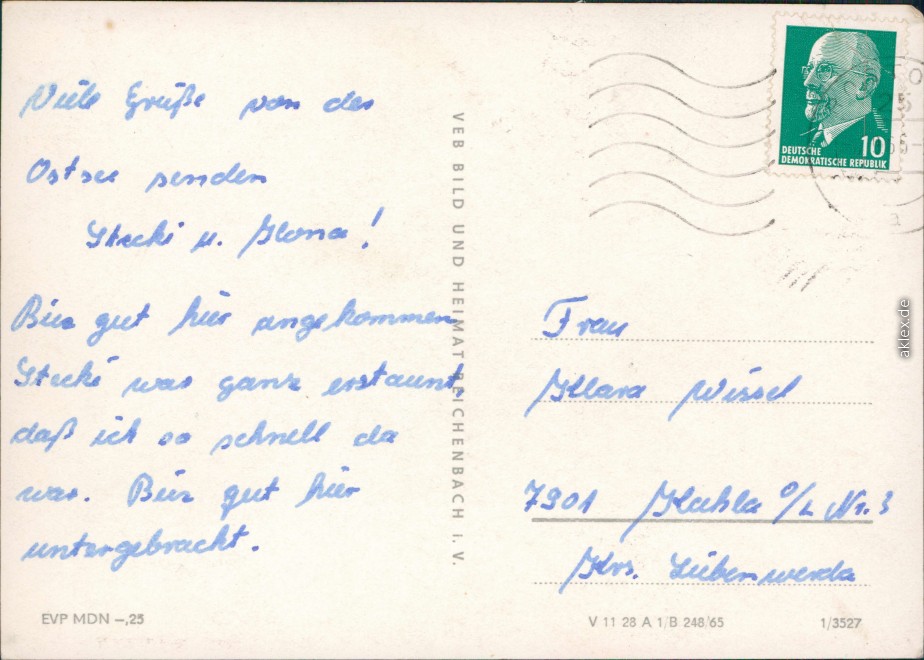 Viele Grüße von der
Ostsee senden
Stecki u. Ilona!
Bin gut hier angekommen
Stecki war ganz erstaunt,
daß ich so schnell da
war. Bin gut hier
untergebracht.
EVP MDN –,25
VEB BILD UND HEIMAT REICHENBACH I. V.
10
DEUTSCHE
DEMOKRATISCHE REPUBLIK
Frau
Klara Wissel
7901 Kahla o/L Nr. 3
Krs. Liebenwerda
V 11 28 A 1/B 248/65 1/3527
aklex.de